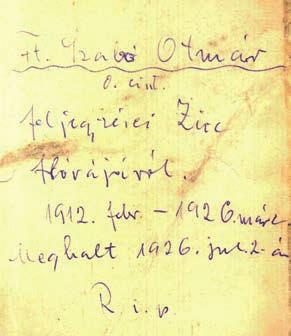 Ft. Szabó Otmár
O. Cist.
feljegyzései Zirc
flórájáról.
1912. febr. – 1926. márc.
Meghalt 1926. jul. 2-án
R. i. p.